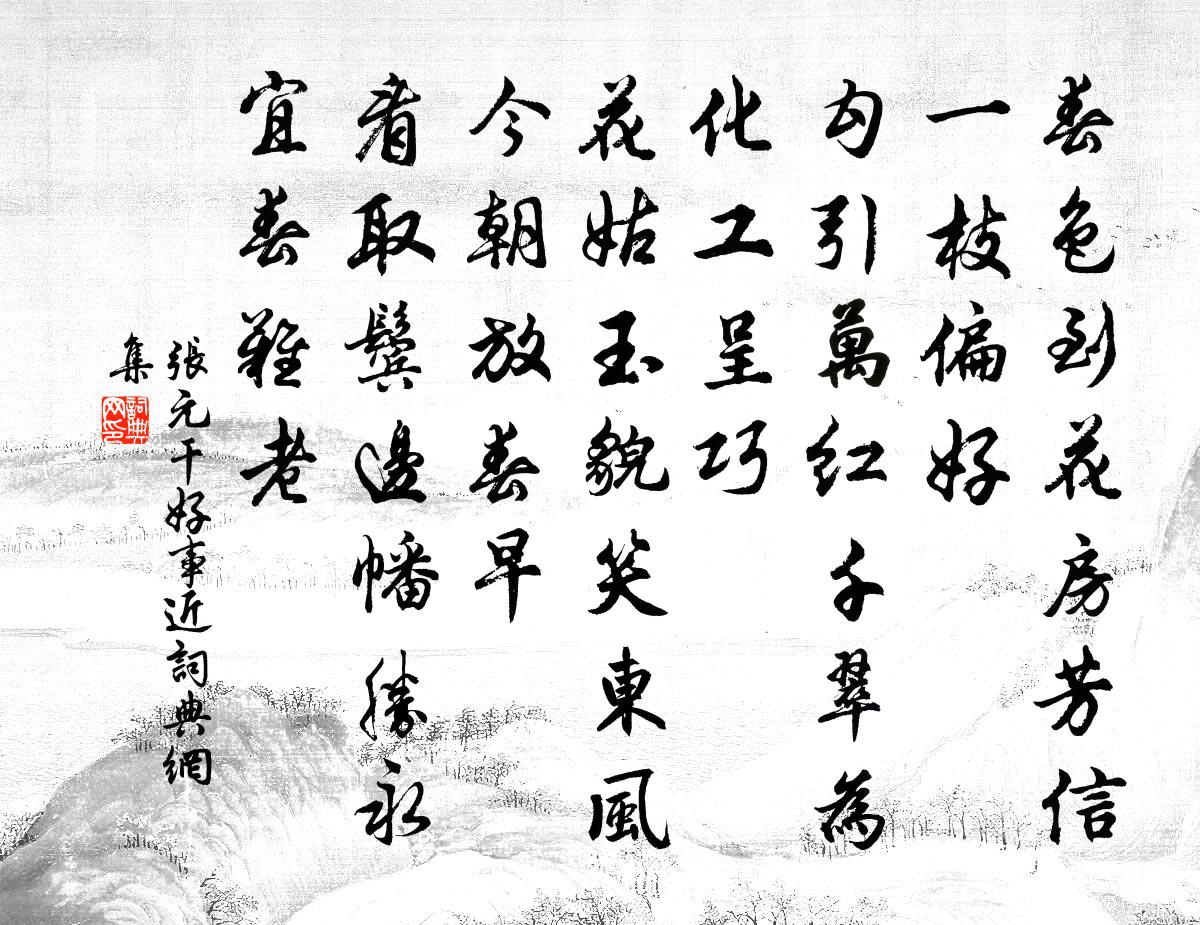 春色到花房芳信
一枝偏好
勾引萬紅千翠為
化工呈巧
花姑玉貌笑東風
今朝放春早
看取鬢邊幡勝永
宜春難老
張元干好事近詞典網
集
詞典
网印